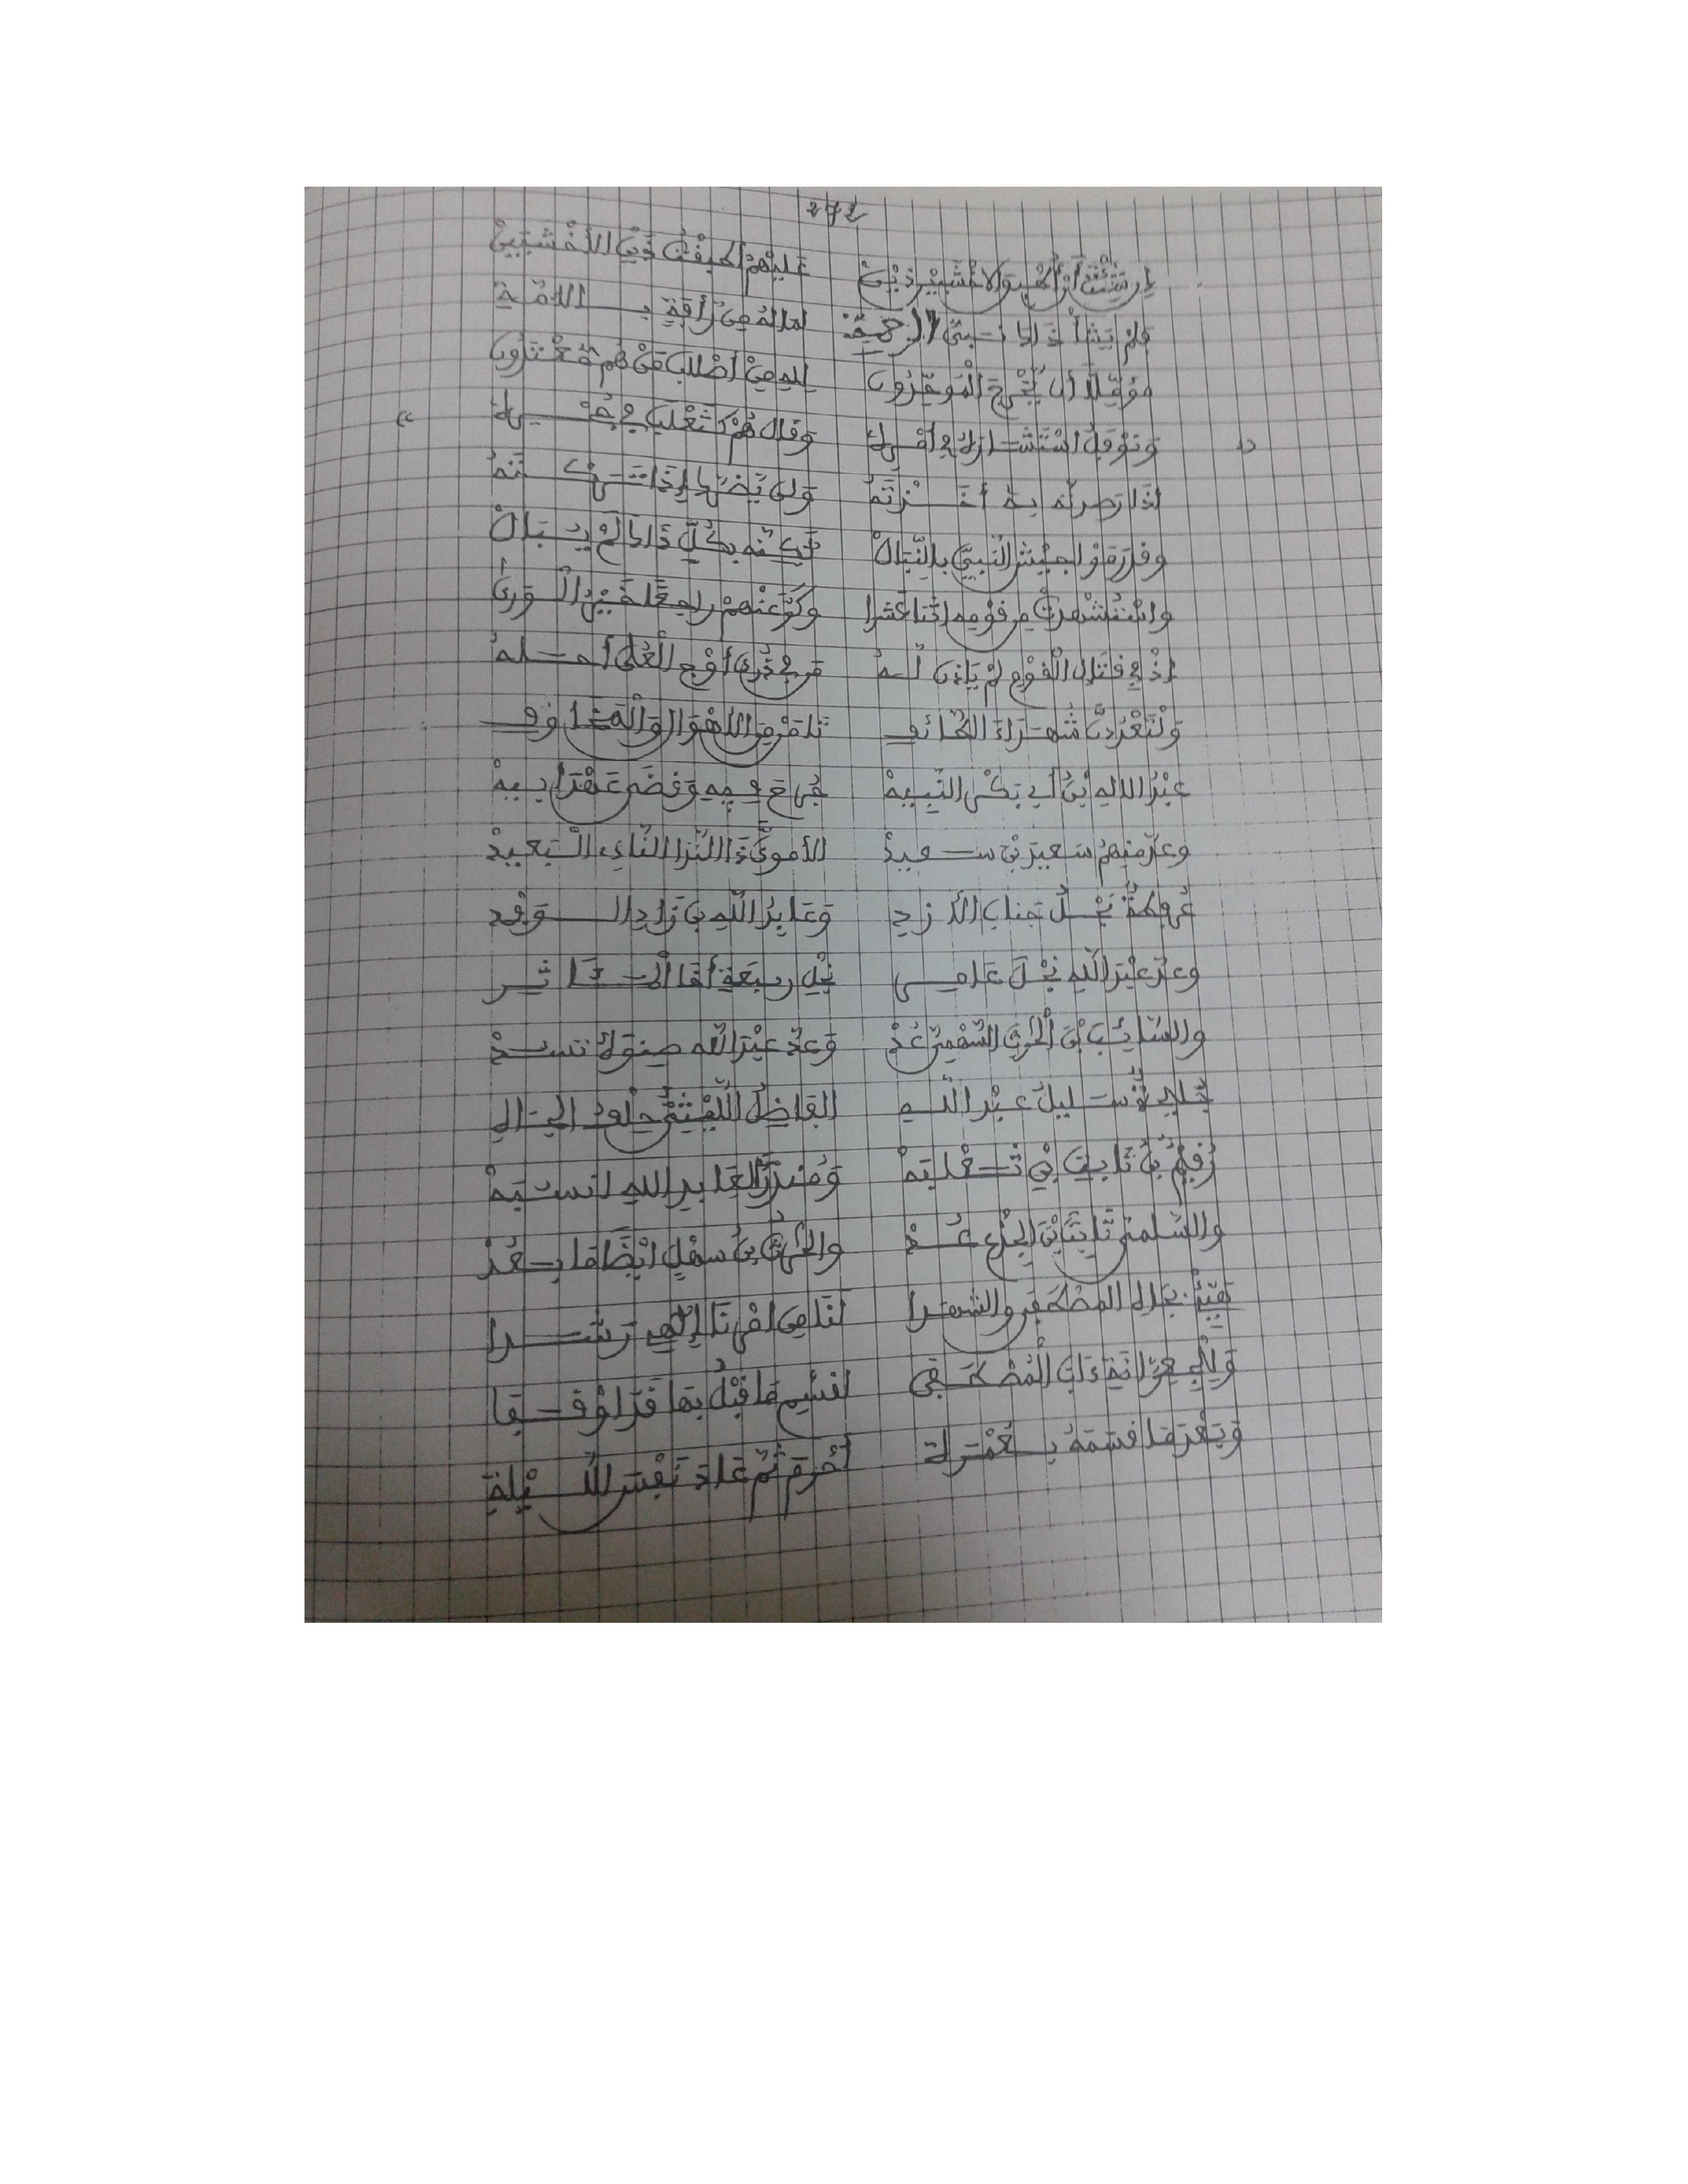 272
إن شئت أن أطبق الاخشبين ذين عليهم أطبقت ذين الأخشبين
فلم يشأ ذاك نبي الرحمة لما له من رأفة بالامة
مؤملا أن يخرج الموحدون لله من أصلاب من هم ملحدون
ونوفل استشاره في أمره وقال هم كثعلب في جحره
اذا رصدته به أخذته ولن يضرها إذا تركته
وقد رموا جيش النبي بالنبال لكنه بكل ذاك لم يبال
واستشهدت من قومه اثنا عشرا وكر عنهم راجعا خير الورى
إذ في قتال القوم لم ياذن له من في ذرى أوج العلى أحله
ولتعددن شهداء الطائف تامن من الاهوال والمخاوف
عبد الاله بن أبي بكر النبيه جرح فيه وقضى عهد أبيه
وعد منهم سعيد بن سعيد الأموي ذا الندا النائي البعيد
عرفطة نجل جناب الأزدي وعابد الله بن زاد الوفد
وعد عبد الله نجل عامر نجل ربيعة أخا المآثر
والسائب بن الحرث السهمي عد وعد عبد الله صنوه تسد
جليحة سليل عبد الله الفاضل الليثي حلو
رقيم بن ثابت بن ثعلبه ومنذر العابد الله انسبه
والسلمي ثابت بن الجذع عد والحرث بن سهل ايضا ما بعد
هيئ بجاه المصطفى والشهدا لنا من امرنا إلهي رشدا
ولجعرانة ءاب المصطفى لقسم ما قبل بها قد اوقفا
وبعد ما قسمه بعمرة أحرم ثم عاد نفس الليلة